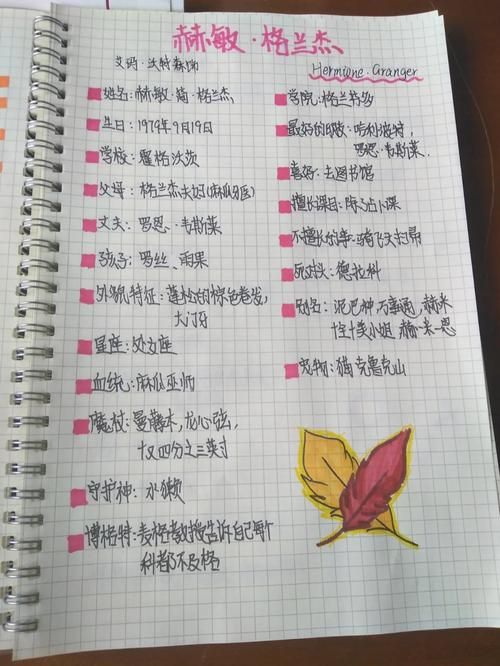 赫敏·格兰杰
艾玛·沃特森饰
Hermione·Granger
姓名:赫敏·简·格兰杰
生日:1979年9月19日
学校:霍格沃茨
父母:格兰杰夫妇(麻瓜牙医)
丈夫:罗恩·韦斯莱
孩子:罗丝、雨果
外貌特征:蓬松的棕色卷发,
大门牙
星座:处女座
血统:麻瓜巫师
魔杖:曼藤木,龙心弦,
十又四分之三英寸
守护神:水獭
博格特:麦格教授告诉自己每个
科都不及格
学院:格兰芬多
最好的朋友:哈利波特,
罗恩·韦斯莱.
喜好:去图书馆
擅长课目:除了占卜课
不擅长的事:骑飞天扫帚
死对头:德拉科
别名:泥巴种,万事通,赫米
恼·恩
宠物:猫 克鲁克山